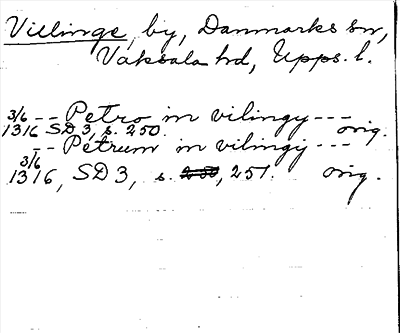 Villinge, by, Danmarks sn,
Vaksala hd, Upps. l.
3/6 -- Petro in vilingy ---
1316 SD 3, s. 250. orig.
-- Petrum in vilingy ---
3/6
1316, SD 3, s. 250, 251. orig.